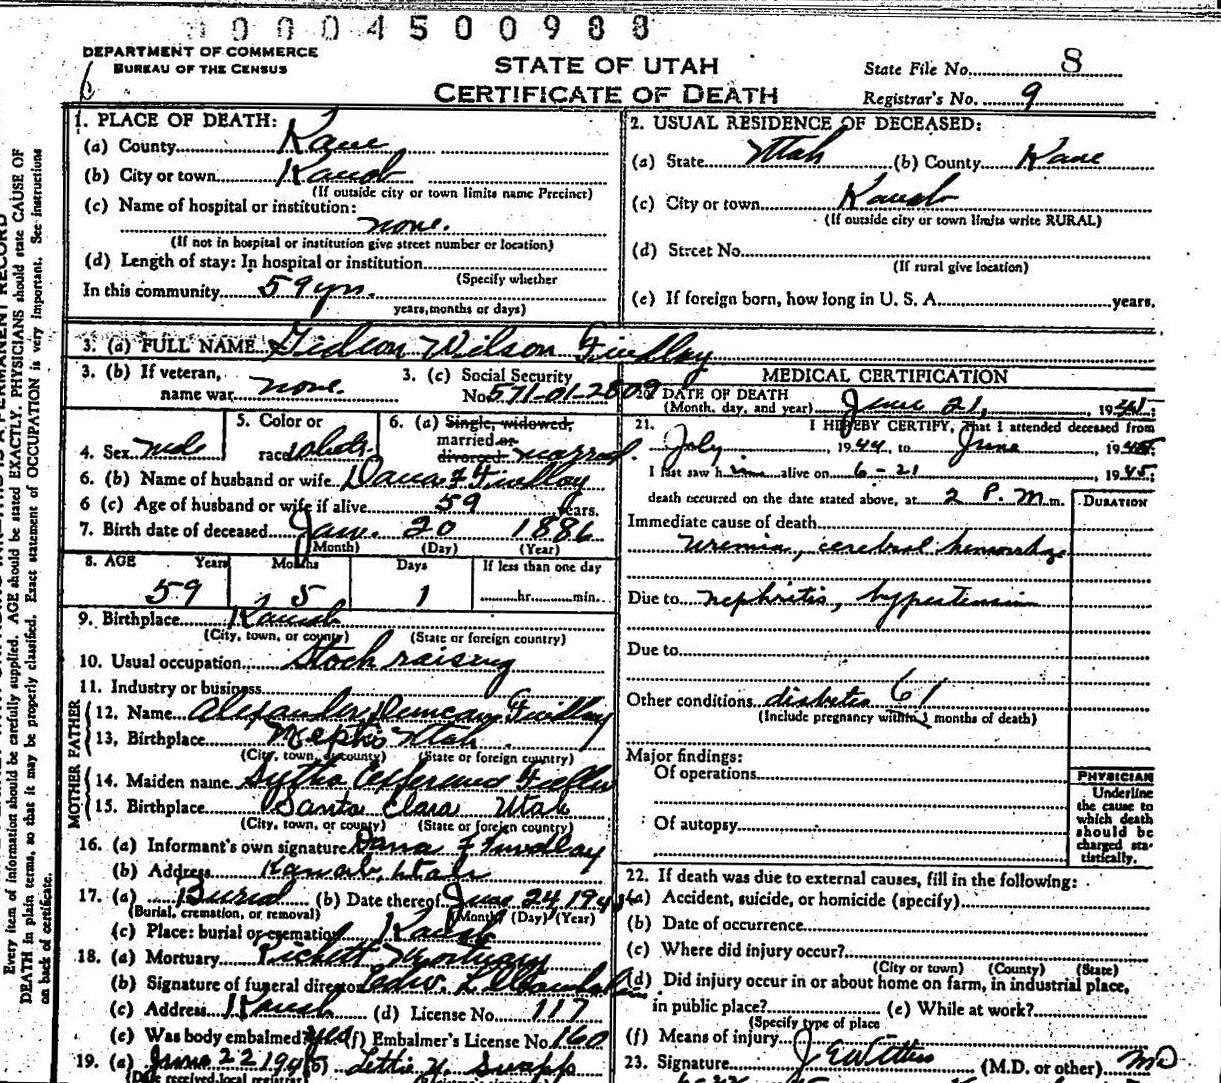 0004500988
DEPARTMENT OF COMMERCE
BUREAU OF THE CENSUS
STATE OF UTAH
CERTIFICATE OF DEATH
State File No. 8
Registrar's No. 9
1. PLACE OF DEATH:
(a) County Kane
(b) City or town Kanab
(If outside city or town limits name Precinct)
(c) Name of hospital or institution:
none.
(If not in hospital or institution give street number or location)
(d) Length of stay: In hospital or institution
(Specify whether
In this community 59 yrs.
years, months or days)
2. USUAL RESIDENCE OF DECEASED:
(a) State Utah (b) County Kane
(c) City or town Kanab
(If outside city or town limits write RURAL)
(d) Street No.
(If rural give location)
(e) If foreign born, how long in U. S. A. years.
3. (a) FULL NAME Gideon Wilson Findlay
3. (b) If veteran,
name war none.
3. (c) Social Security
No. 571-01-2809
4. Sex male
5. Color or
race white
6. (a) Single, widowed,
married or
divorced married
6. (b) Name of husband or wife Dana F Findlay
6 (c) Age of husband or wife if alive 59 years.
7. Birth date of deceased Jan. 20 1886
(Month) (Day) (Year)
8. AGE Years Months Days If less than one day
59 5 1 hr. min.
9. Birthplace Kanab
(City, town, or county) (State or foreign country)
10. Usual occupation Stock raising
11. Industry or business
MOTHER FATHER
12. Name Alexander Duncan Findlay
13. Birthplace Nephi Utah
(City, town, or county) (State or foreign country)
14. Maiden name
15. Birthplace Santa Clara Utah
(City, town, or county) (State or foreign country)
16. (a) Informant's own signature Dana F Findlay
(b) Address Kanab, Utah
17. (a) Burial (b) Date thereof June 24, 194
(Burial, cremation, or removal) (Month) (Day) (Year)
(c) Place: burial or cremation Kanab
18. (a) Mortuary Mortuary
(b) Signature of funeral director
(c) Address Kanab (d) License No. 117
(e) Was body embalmed? yes (f) Embalmer's License No. 160
19. (a) June 22 194 (b) Lettie Y. Swapp
(Date received local registrar)
MEDICAL CERTIFICATION
20. DATE OF DEATH
(Month, day, and year) June 21, 19
21. I HEREBY CERTIFY, That I attended deceased from
July 1944, to June 1945;
I last saw him alive on 6-21 1945,
death occurred on the date stated above, at 2 P. M m.
DURATION
Immediate cause of death
uremia, cerebral hemorrhage
Due to nephritis, hypertension
Due to
Other conditions diabetes 61
(Include pregnancy within 3 months of death)
Major findings:
Of operations
Of autopsy
PHYSICIAN
Underline
the cause to
which death
should be
charged sta-
tistically.
22. If death was due to external causes, fill in the following:
(a) Accident, suicide, or homicide (specify)
(b) Date of occurrence
(c) Where did injury occur?
(City or town) (County) (State)
(d) Did injury occur in or about home on farm, in industrial place,
in public place? (e) While at work?
(Specify type of place
(f) Means of injury
23. Signature (M.D. or other) MD
Every item of information should be carefully supplied. AGE should be stated EXACTLY. PHYSICIANS should state CAUSE OF
DEATH in plain terms, so that it may be properly classified. Exact statement of OCCUPATION is very important. See instructions
on back of certificate.